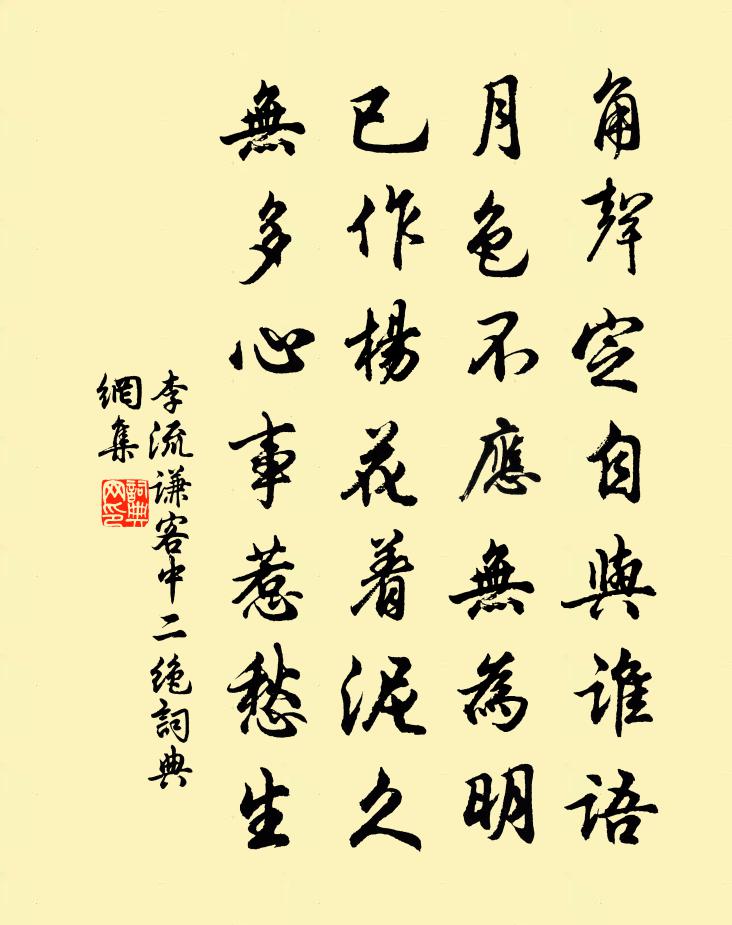 角聲定自與誰語
月色不應無為明
已作楊花着泥久
無多心事惹愁生
李流謙客中二絶詞典
網集
詞典網印